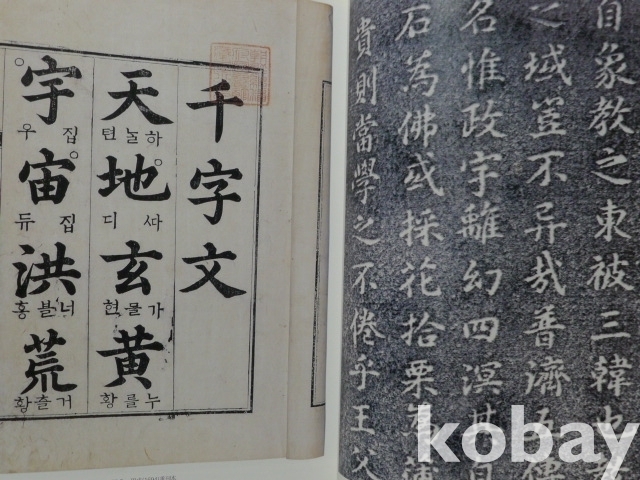 千字文
天 하놀텬
地 싸디
玄 가믈현
黄 누를황
宇 집우
宙 집듀
洪 너블홍
荒 거츨황
自象教之東被三韓也
之域豈不异哉普濟五傳
名惟政字離幻四溟其自
石為佛或採花拾栗
貴則當學之不倦乎王父
kobay